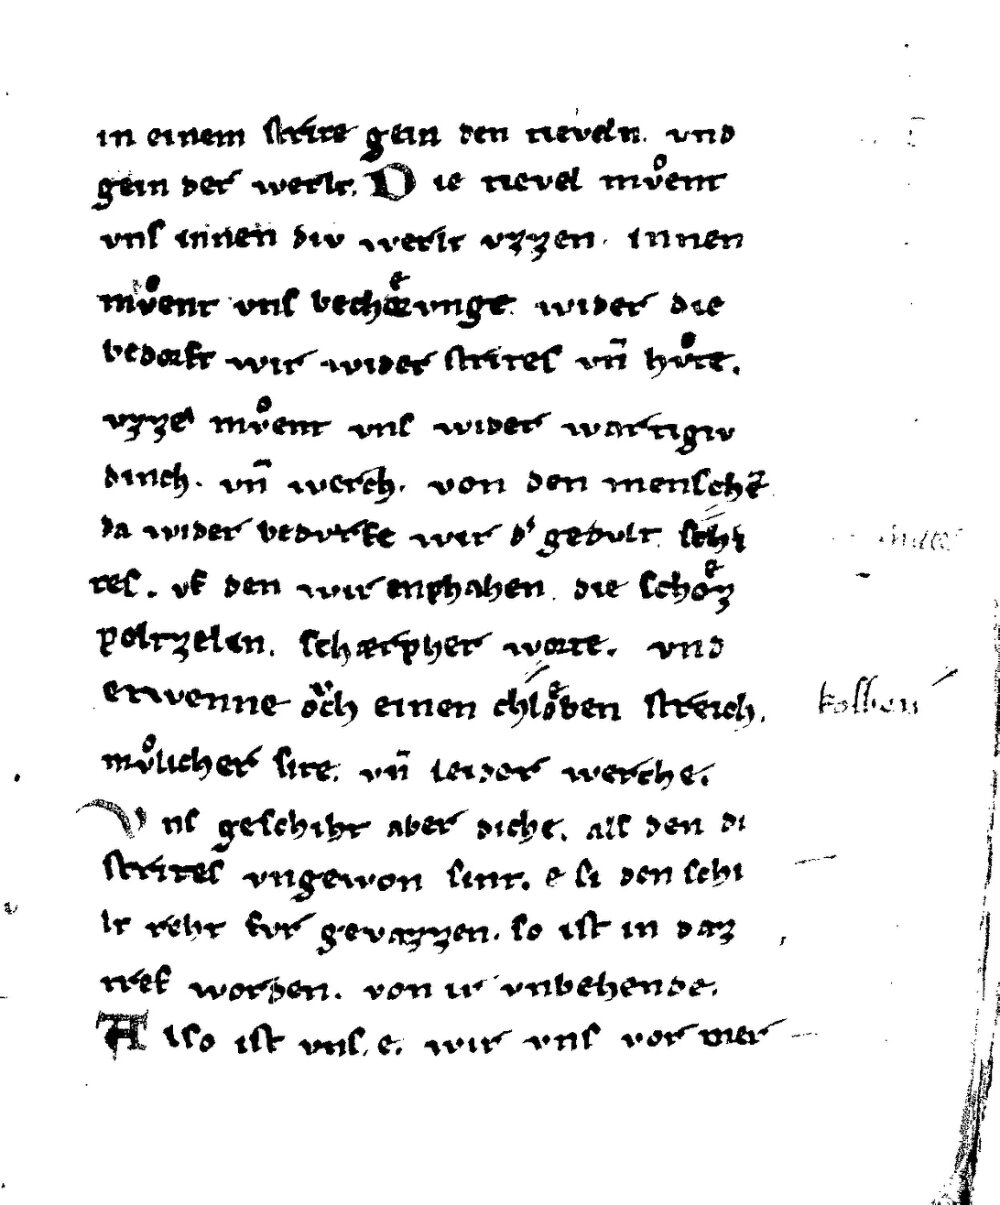 in einem strite gein den tieveln. vnd
gein der werlt. Die tievel mv̊ent
vns innen div werlt vzzen. innen
mv̊ent vns bechoͤrvnge. wider die
bedorft wir wider strites vn̄ hv̊te.
vzzen mv̊ent vns wider wartigiv
dinch. vn̄ werch. von den menschē
da wider bedvrfe wir d' gedvlt schi
tes. vf den wir enphahen die schoͤz
poltzelin. schærpher worte. vnd
etwenne oͮch einen chloͤben streich.
mv̊licher site. vn̄ leider werche.
Vns geschiht aber diche. als den di
strites vngewon sint. e si den schi
lt reht fvr gevazzen. so ist in daz
tref worden. von ir vnbehende.
Also ist vns. e. wir vns vor mer
kolben